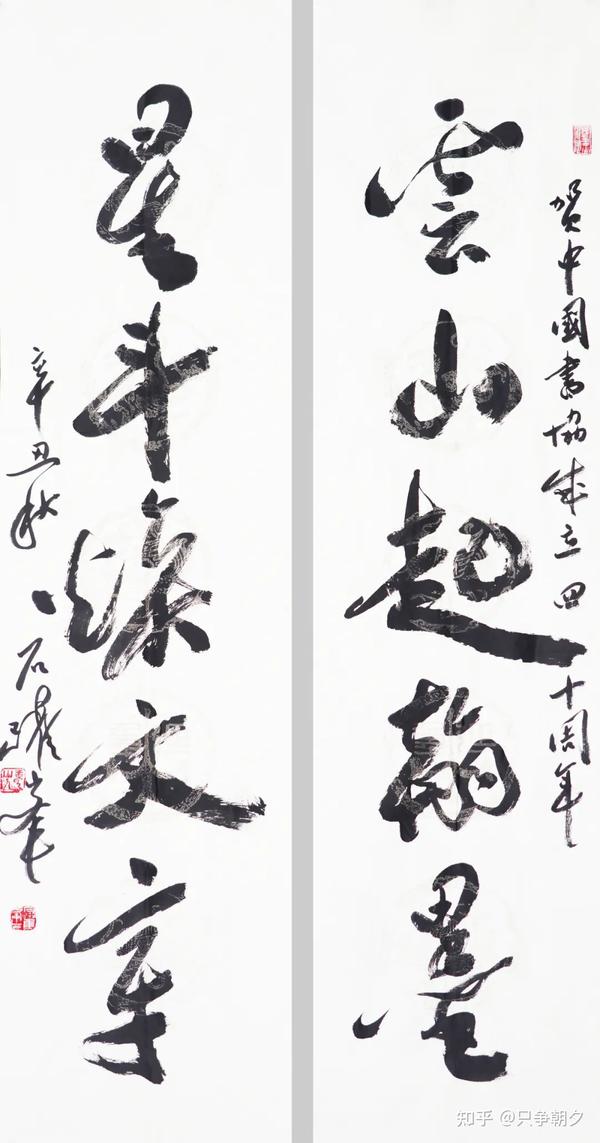 贺中國書協成立四十周年
雲山起翰墨
星斗燦文章
辛丑秋 石躍峯
知乎 @只争朝夕